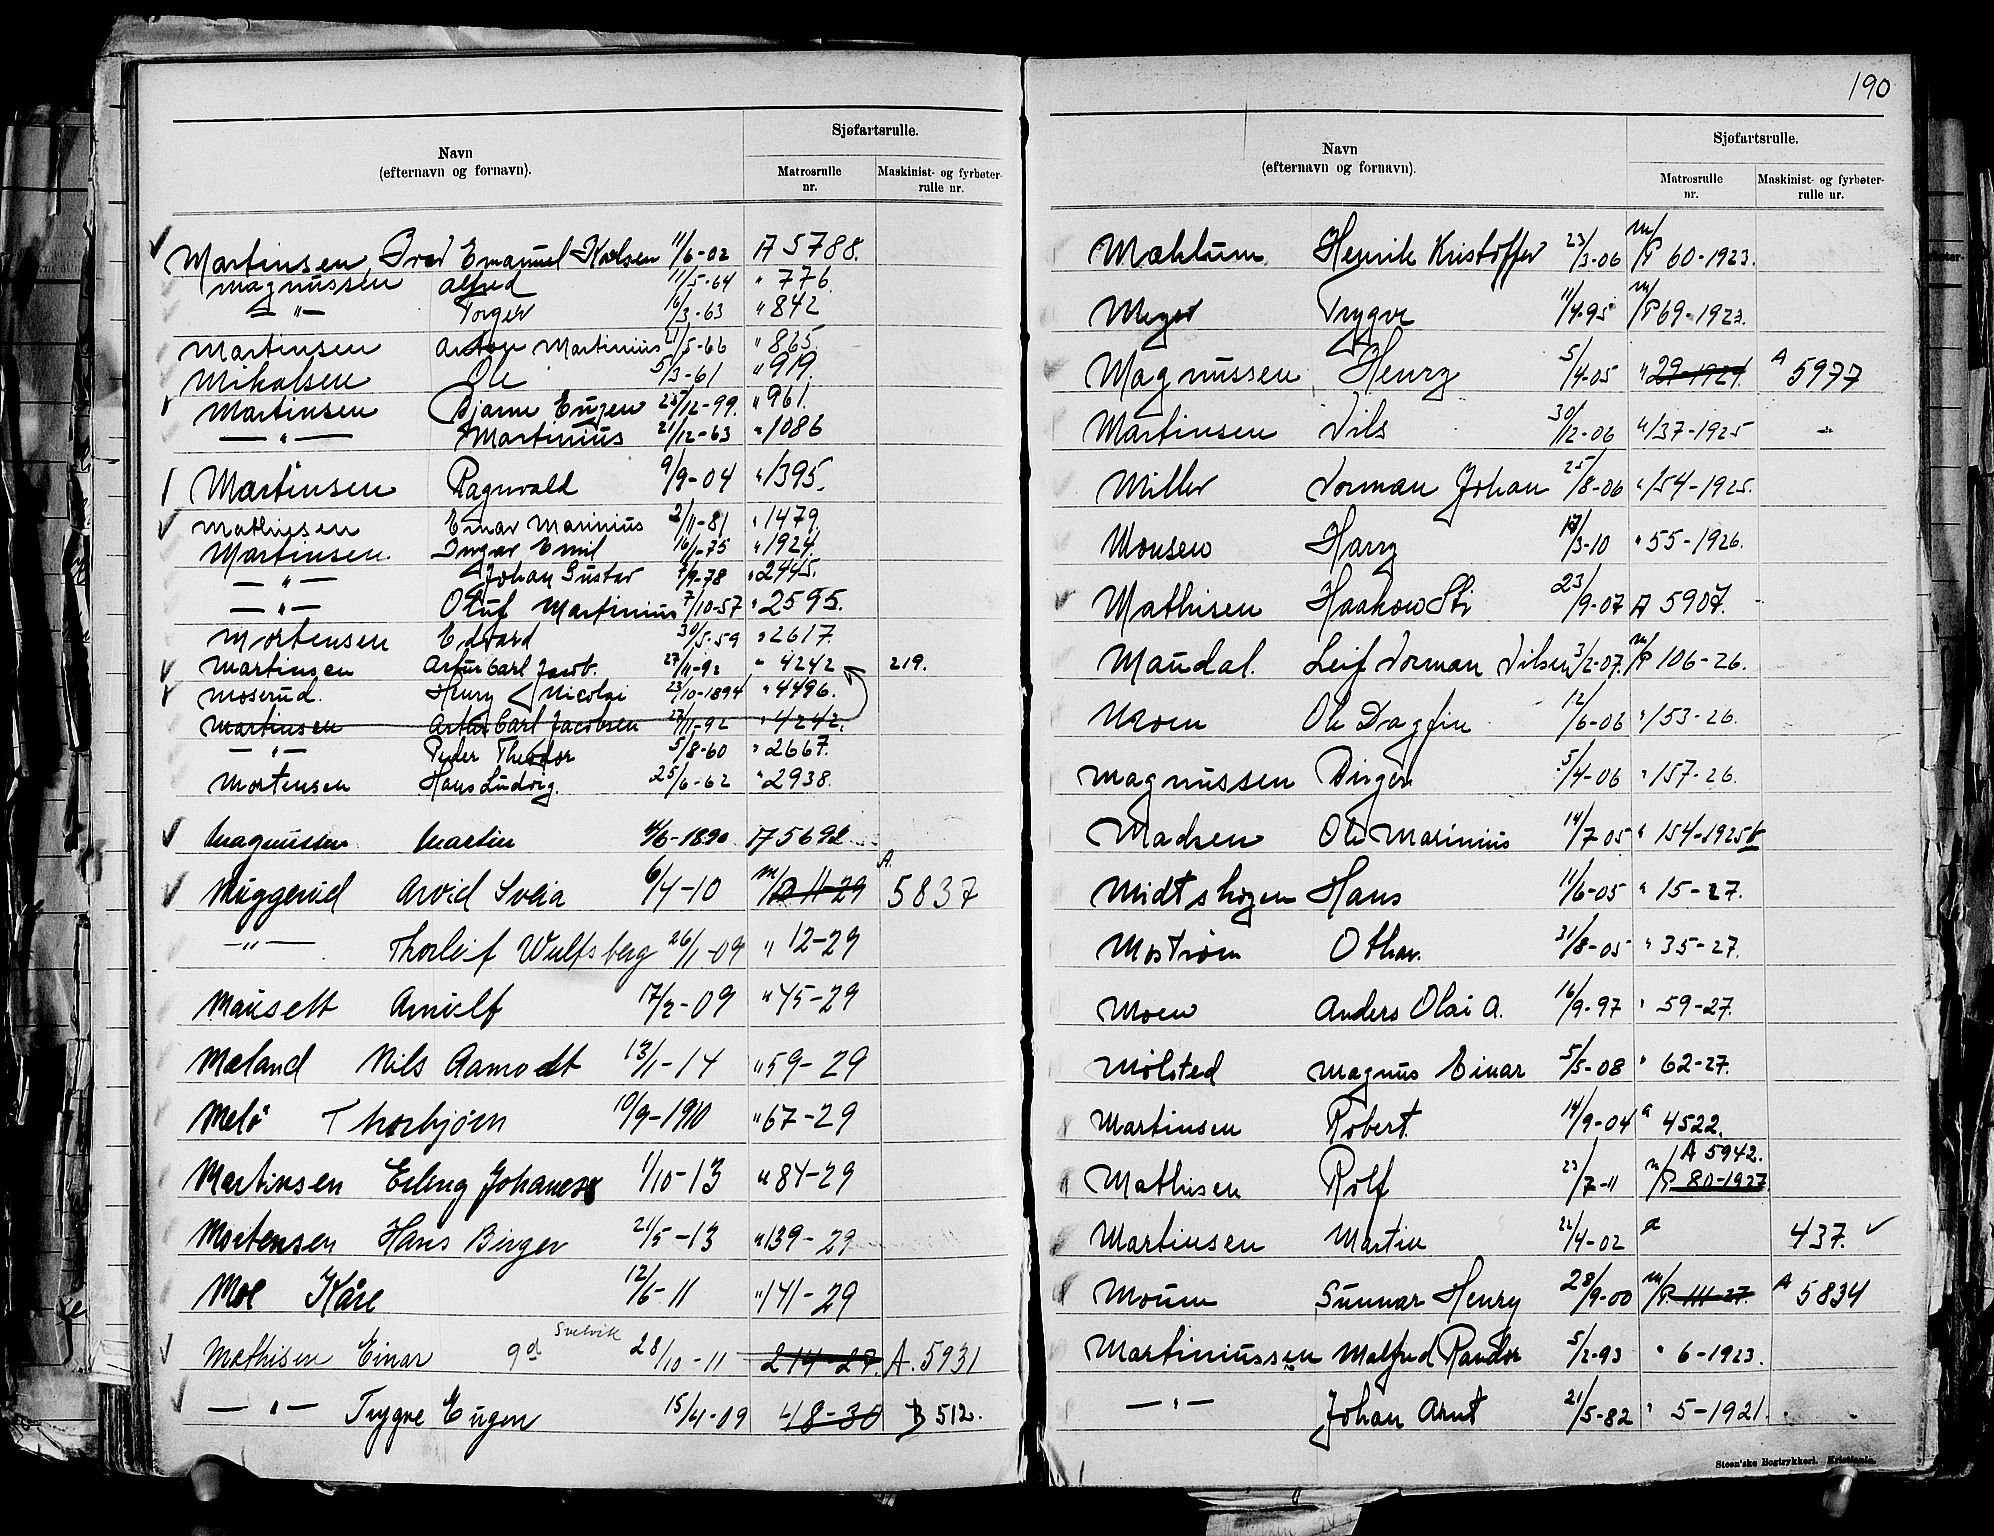 190
Navn
(efternavn og fornavn).
Sjøfartsrulle.
Matrosrulle nr.
Maskinist- og fyrbøter-rulle nr.
Martinsen, Emanuel Karlsen 11/6-02 A 5788.
Magnussen Alfred 11/5-64 " 776.
— " — Torger 16/3-63 " 842
Martinsen Anton Martinius 21/5-66 " 865.
Mikalsen Ole 5/3-61 " 919.
Martinsen Bjarne Eugen 25/12-99. " 961.
— " — Martinius 21/12-63 " 1086
Martinsen Ragnvald 9/9-04 " 1395.
Mathisen Einar Marinius 2/11-81 " 1479.
Martinsen Ingvar Emil 16/1-75 " 1924.
— " — Johan Gustav 7/9-78 " 2445.
— " — Oluf Martinius 7/10-57 " 2595.
Mortensen Edvard 30/5-59 " 2617.
Martinsen Artur Carl Jacob. 27/11-92 " 4242 219.
Moserud. Henry Nicolai 23/10-1894 " 4496.
Martinsen Artur Carl Jacobsen 27/11-92 " 4242.
— " — Peder Theodor 5/8-60 " 2667.
Mortensen Hans Ludvig. 25/6-62 " 2938.
Magnussen Martin 4/6-1890 A 5692
Muggerud Arvid Svea 6/4-10 M/P 11-29 A. 5837
— " — Thorleif Wulfsberg 26/1-09 " 12-29
Mausett Arnulf 17/2-09 " 45-29
Mæland Nils Aamodt 13/1-14 " 59-29
Melø Thorbjørn 10/9-1910 " 67-29
Martinsen Erling Johannes 1/10-13 " 84-29
Mortensen Hans Birger 21/5-13 " 139-29
Moe Kåre 12/6-11 " 141-29
Mathisen Einar gd Svelvik 28/10-11 214-27. A. 5931
— " — Trygve Eugen 15/4-09 48-30 B 512.
Navn
(efternavn og fornavn).
Sjøfartsrulle.
Matrosrulle nr.
Maskinist- og fyrbøter-rulle nr.
Mæhlum Henrik Kristoffer 23/3-06 M/P 60-1923.
Meyer Trygve 11/4-95 M/P 69-1923.
Magnussen Henry 5/4-05 " 29-1924. A 5977
Martinsen Nils 30/12-06 " 137-1925 - " -
Miller Norman Johan 25/8-06 " 154-1925.
Monsen Harry 17/3-10 " 55-1926.
Mathisen Haakon Sti 23/9-07 A 5907.
Maudal. Leif Norman Nilsen 3/2-07. M/P 106-26.
Moen Ole Dagfin 12/6-06 " 153-26.
Magnussen Birger 5/4-06 " 157-26.
Madsen Ole Marinius 14/7 05 " 154-1925b
Midtskogen Hans 11/6-05 " 15-27.
Mostrøm Othar. 31/8-05 " 35-27.
Moen Anders Olai A. 16/9-97 " 59-27.
Mølsted Magnus Einar 5/5-08 " 62-27.
Martinsen Robert. 14/9-04 a 4522.
A 5942.
Mathisen Rolf 23/7-11 M/P 80-1927.
Martinsen Martin 22/4-02 a 437. ✓
Mouen Gunnar Henry 28/9-00 M/P 111-27. A 5834
Martiniussen Malfred Randor 5/2-93 " 6-1923.
— " — Johan Arnt 21/5-82 " 5-1921.
Steen'ske Bogtrykkeri, Kristiania.